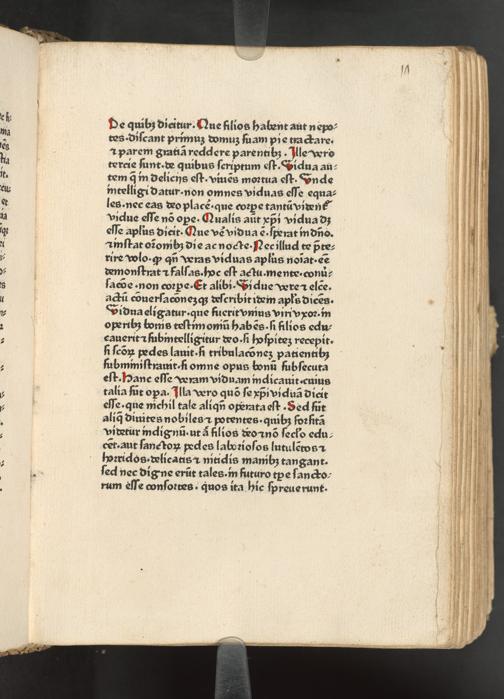 De quibꝫ dicitur. Que filios habent aut nepo-
tes. discant primuꝫ domuꝫ suam pie tractare.
⁊ parem gratiā reddere parentibꝫ. Ille vero
tercie sunt. de quibus scriptum est. Vidua au-
tem q̄ in delicijs est. viuēs mortua est. Unde
intelligi datur. non omnes viduas esse equa-
les. nec eas deo placē. que corpe tantū vident
vidue esse nō ope. Qualis aut xp̄i vidua dꝫ
esse aplus dicit. Que ve vidua ē. sperat in dn̄o.
⁊ instat or̄onibꝫ die ac nocte. Nec illud te p̄te-
rire volo. ꝙ qn̄ veras viduas aplus noīat. eē
demonstrat ⁊ falsas. hoc est actu. mente. conū-
sacōe. non corpe. Et alibi. Vidue vere ⁊ elcē.
actū cōuersaconeꝫqꝫ describit idem apls dicēs.
Vidua eligatur. que fuerit vnius viri vxor. in
operibꝫ bonis testimoniū habēs. si filios edu-
cauerit ⁊ subintelligitur deo. si hospitez recepit.
si scōꝝ pedes lauit. si tribulaconeꝫ patientibꝫ
subministrauit. si omne opus bonū subsecuta
est. Hanc esse veram viduam indicauit. cuius
talia sūt opa. Illa vero quō se xp̄i viduā dicit
esse. que nichil tale aliqn̄ operata est. Sed sūt
aliq̄ diuites nobiles ⁊ potentes. quibꝫ forsitā
videtur indignū. ut ā filios deo ⁊ nō seclo edu-
cēt. aut sanctoꝝ pedes laboriosos lutulētos ⁊
horridos. delicatis ⁊ nitidis manibꝫ tangant.
sed nec digne erūt tales. in futuro tpe sancto-
rum esse consortes. quos ita hic spreuerunt.